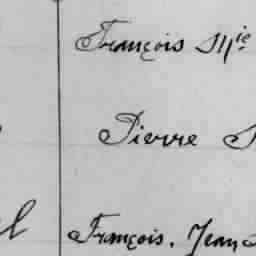 François M^ie
Pierre
François. Jean